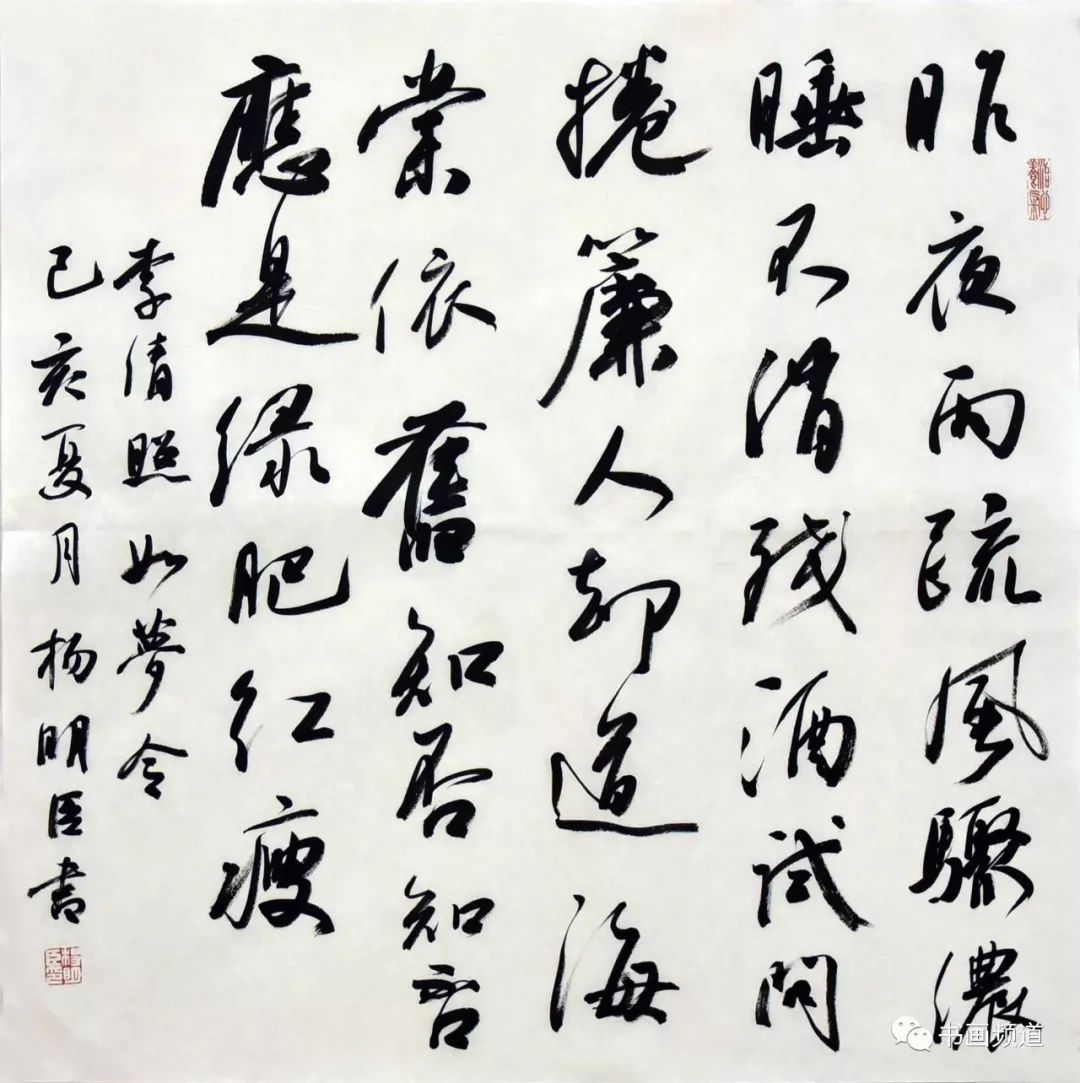 昨夜雨疏风驟濃
睡不消残酒試問
捲簾人却道海
棠依舊知否知否
應是绿肥红瘦
李清照如夢令
己亥夏月杨明臣書
书画频道